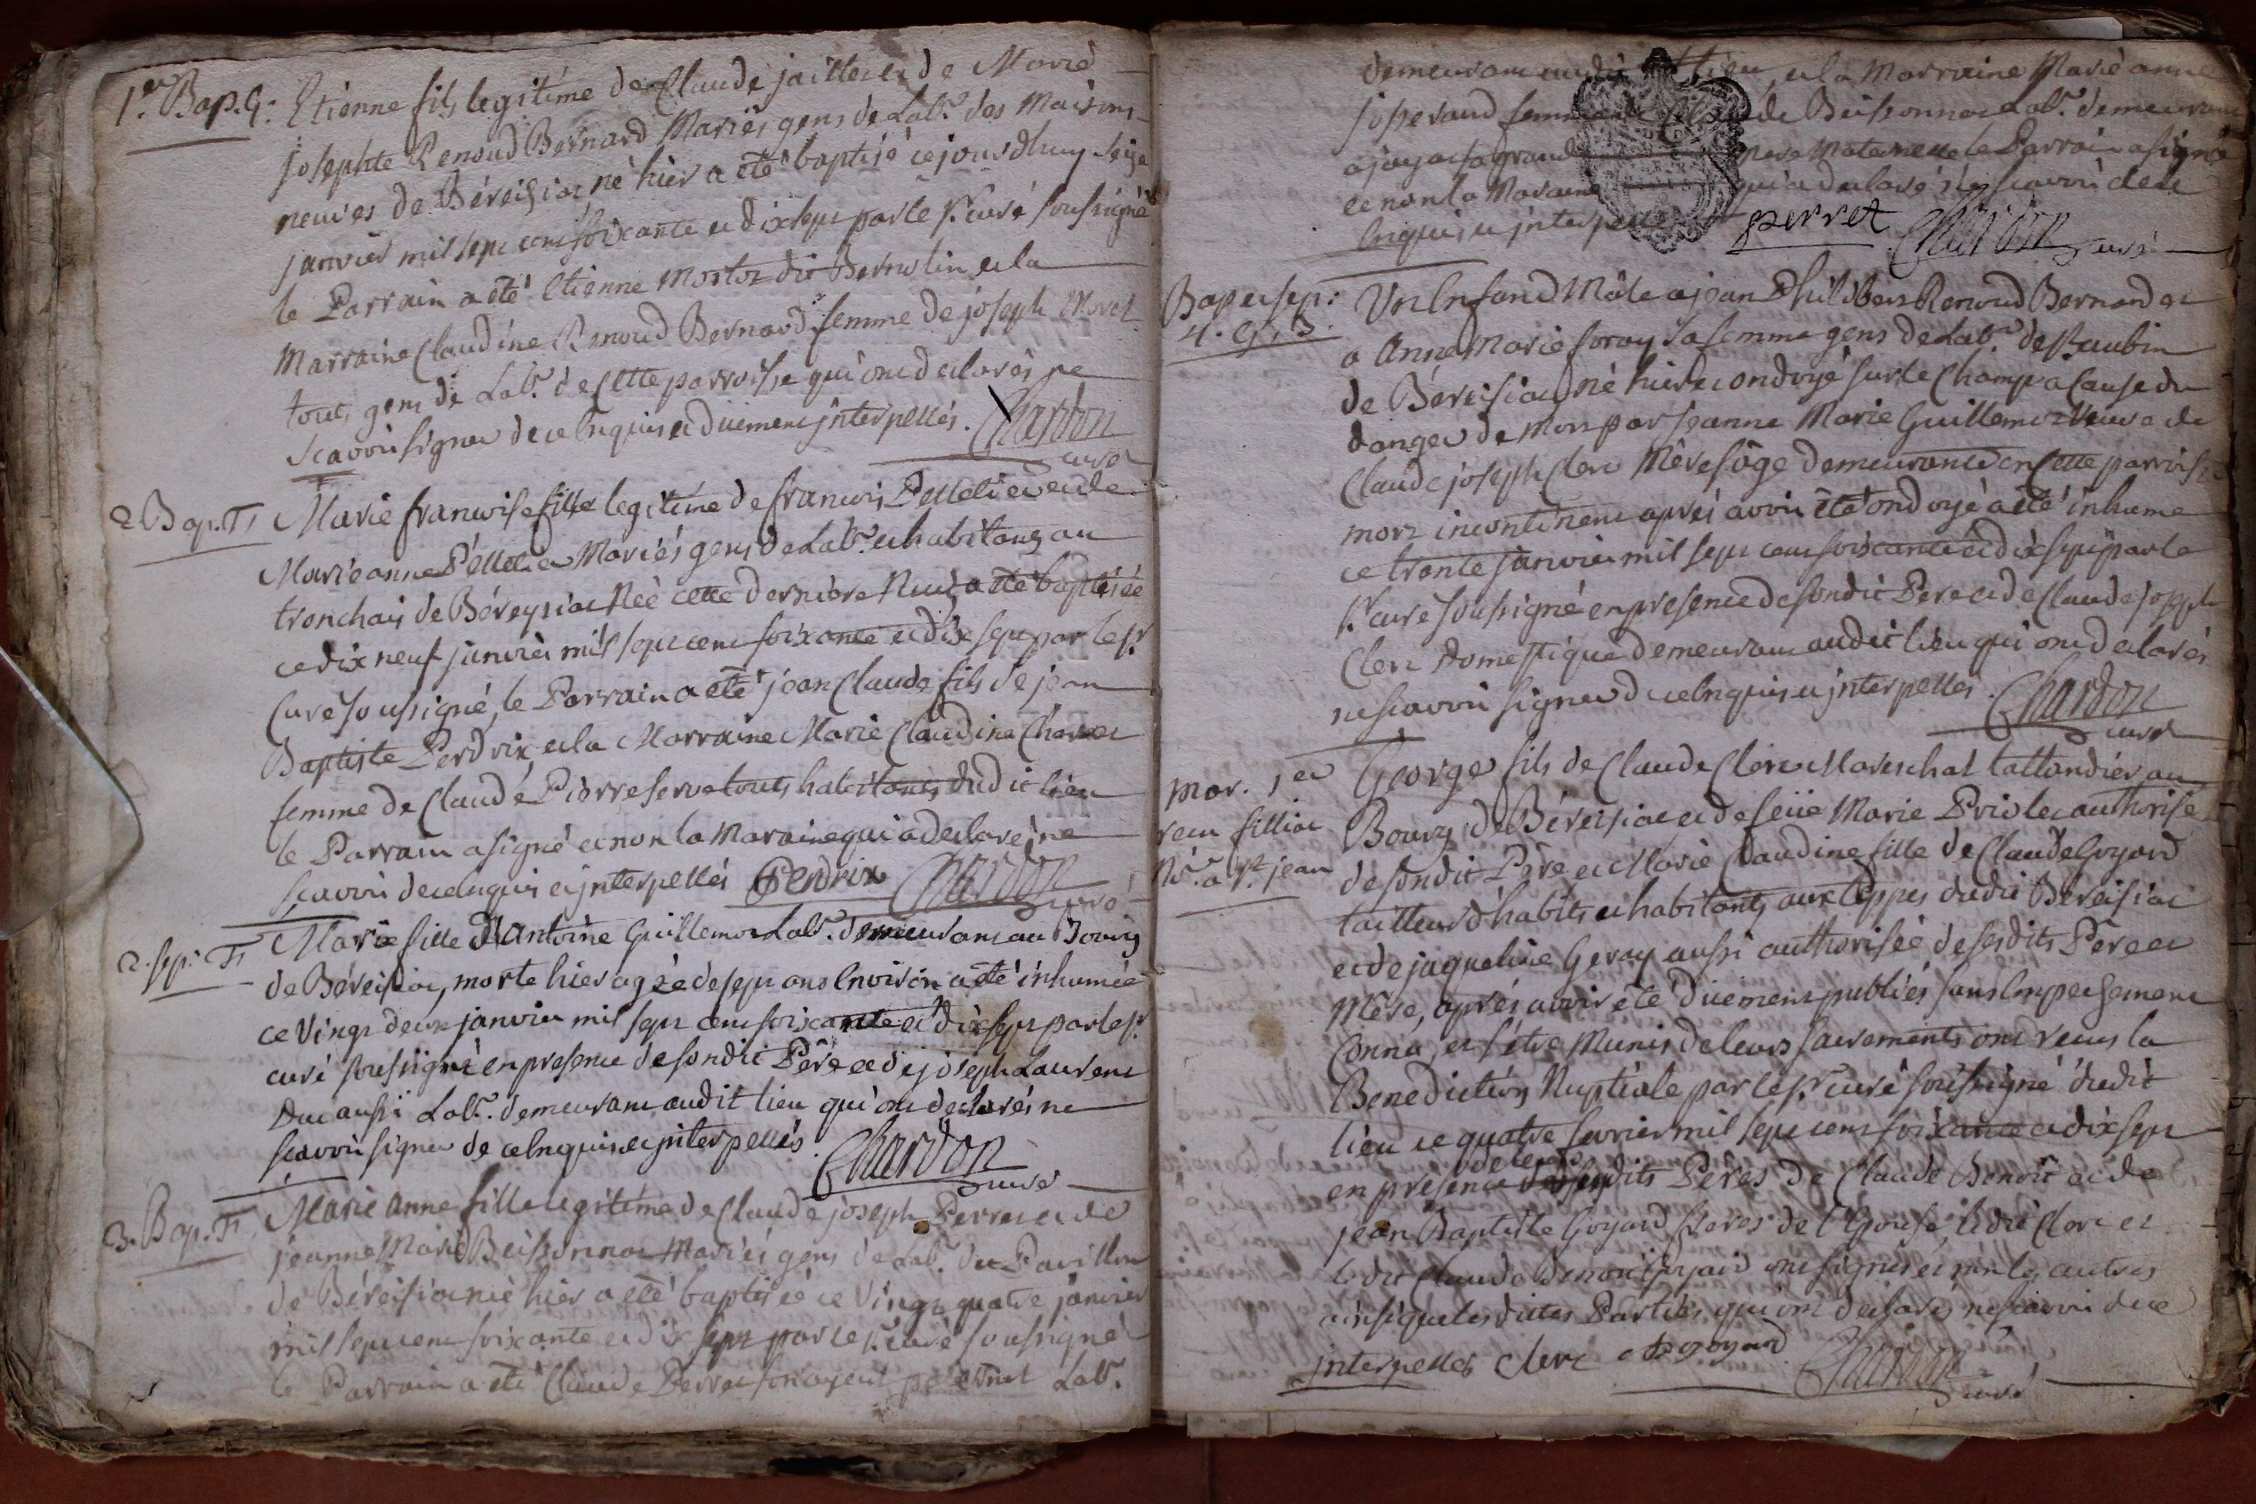 1.er Bap. G: Etienne fils legitime de Claude jaillet et de Marie
josephte Renoud Bernard Mariés gens de Lab.r des Maisons
neuves de Béreisiat né hier a été baptisé ce jourdhuy seize
janvier mil sept cent soixante et dixsept par le Sr. curé soussigné
le Parrain a été Etienne dit Bernolin et la
Marraine Claudine Renoud Bernard femme de joseph Morel
tous gens de Lab.r de cette parroisse qui ont declarés ne
scavoir signer de ce enquis et duement jnterpellés. Chardon
curé
2 Bap. F Marie francoise fille legitime de francois Pelletier et de
Marie anne Pelletier Mariés gens de Lab.r et habitants au
tronchais de Béreysiat Née cette derniere Nuit a été baptisée
ce dix neuf janvier mil sept cent soixante et dix sept par le Sr.
Curé soussigné, le Parrain a été jean Claude fils de jean
Baptiste Perdrix, et la Marraine Marie Claudine
femme de Claude Pierre serve touts habitants dudit lieu
le Parrain a signé et non la Maraine qui a declaré ne
scavoir de ce enquis et jnterpellés Perdrix Chardon
curé
2. sep. F Marie fille d'Antoine Guillemot Lab.r demeurant au Bourg
de Béreisiat, morte hier agée de sept ans Environ a été inhumée
ce Vingt deux janvier mil sept cent soixante et dix sept par le Sr.
curé soussigné en presence de sondit Père et de joseph Laurent
Duc aussi Lab.r demeurant audit lieu qui ont declarés ne
scavoir signer de ce enquis et jnterpellés. Chardon
curé
3. Bap. F Marie Anne fille legitime de Claude joseph Perret et de
jeanne Marie Buissonnat Mariés gens de Lab.r du Pavillon
de Béreisiat née hier a été baptisée ce Vingt quatre janvier
mil sept cent soixante et dix sept par le Sr. curé soussigné
le Parrain a été Claude Perret son ayeul paternel Lab.r
demeurant audit lieu, et la Marraine Marie anne
josserand femme de Buissonnat Lab.r demeurant
a jayat sa grand mere Maternelle le Parrain a signé
et non la Maraine qui a declaré ne scavoir de ce
Enquis et jnterpellée perret Chardon
curé
Bap et sep:
4. G, 3. Un Enfand Mâle a jean Philibert Renoud Bernard et
a Anne Marie foray sa femme gens de Lab.r de
de Béreisiat né hier et ondoyé sur le Champ a Cause du
danger de mort par jeanne Marie Guillemot Veuve de
Claude joseph Clerc Mère sage demeurante en Cette parroisse
mort incontinent aprés avoir été ondoyé a été inhumé
ce trente janvier mil sept cent soixante et dix sept par le
Sr. curé soussigné en presence de sondit Pere et de Claude joseph
Clerc Domestique demeurant audit lieu qui ont declarés
ne scavoir signer de ce enquis et jnterpellés. Chardon
curé
mar. 1.er George fils de Claude Clerc Mareschal tallandier au
Bourg de Béreisiat et de feüe Marie authorisé
Né. a St. jean de sondit Père et Marie Claudine fille de Claude Goyard
tailleur d'habits et habitants aux Lippes dudit Béreisiat
et de jaqueline Geray aussi authorisée de sesdits Pere et
Mère, aprés avoir été duement publiés sans Empechement
Connu, et s'être Munis de leurs sacrements ont recus la
Benediction Nuptiale par le Sr. curé soussigné dudit
lieu ce quatre fevrier mil sept cent soixante et dix sept
en presence de leursdits Pères de Claude Benoit et de
jean Baptiste Goyard freres de l'Epouse, ledit Clerc et
ledit Claude Benoit Goyard ont signés et non les autres
ainsi que lesdittes Parties qui ont declarés ne scavoir de ce
jnterpellés Clerc goyard Chardon
curé